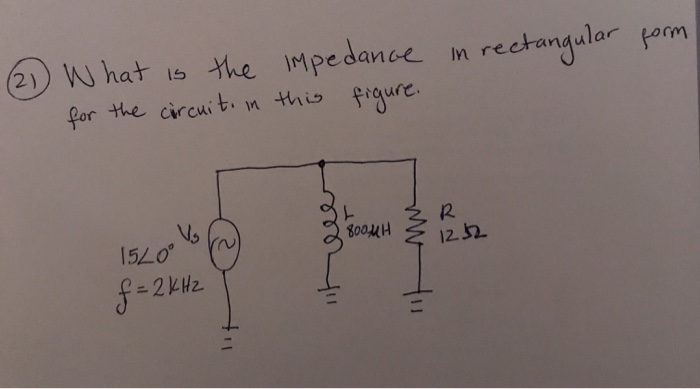 21) What is the impedance in rectangular form
for the circuit. in this figure.
Vs
15∠0°
f=2kHz
L
800μH
R
12Ω